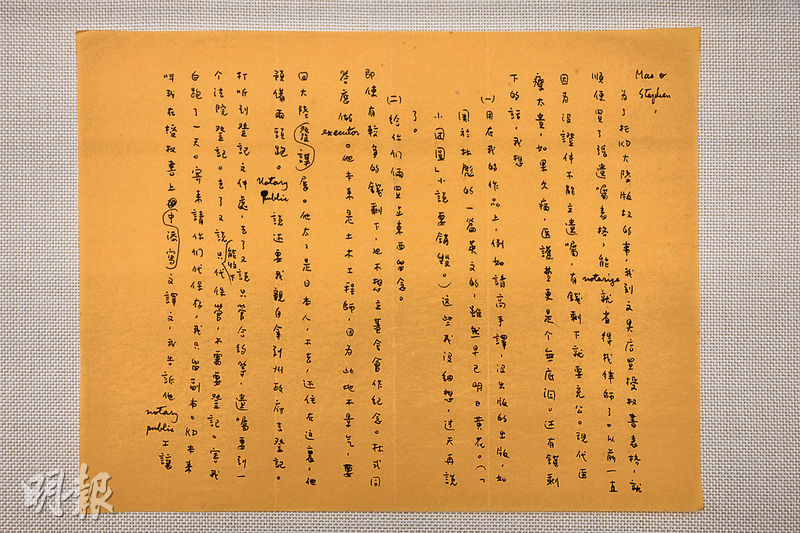 Mae &
Stephen,
為了托KD大陸版权的事,我到文具店買授权書表格,就
順便買了張遺囑表格,能notarize就省得找律師了。以前一直
因為沒證件不能立遺囑,有錢剩下就要充公。現代医
療太貴,如果久病,医護費更是个無底洞。还有錢剩
下的話,我想
(一)用在我的作品上,例如請高手譯,沒出版的出版,如
関於林彪的一篇英文的,雖然早已明日黃花。(「
小団圓」小說要銷毀。)這些我沒細想,过天再說
了。
(二)給你們倆買点東西留念。
即使有較多的錢剩下,也不想立基金会作紀念。林式同
答應做executor。他本來是土木工程師,因為此地不景气,要
回大陸發謀
展。他太太是日本人,不去,还住在这裏,他
預備兩頭跑。notary public說还要我親自拿到州政府去登記。
打听到登記文件處,去了又說只管合約等,遺囑要到一
个法院登記。去了又說只能收下代保管,不需要登記。害我
白跑了一天。寄來請你們代保存,我只留副本。KD本來
叫我在授权書上用中漢寫
文譯文,我告訴他notary public不讓
明報